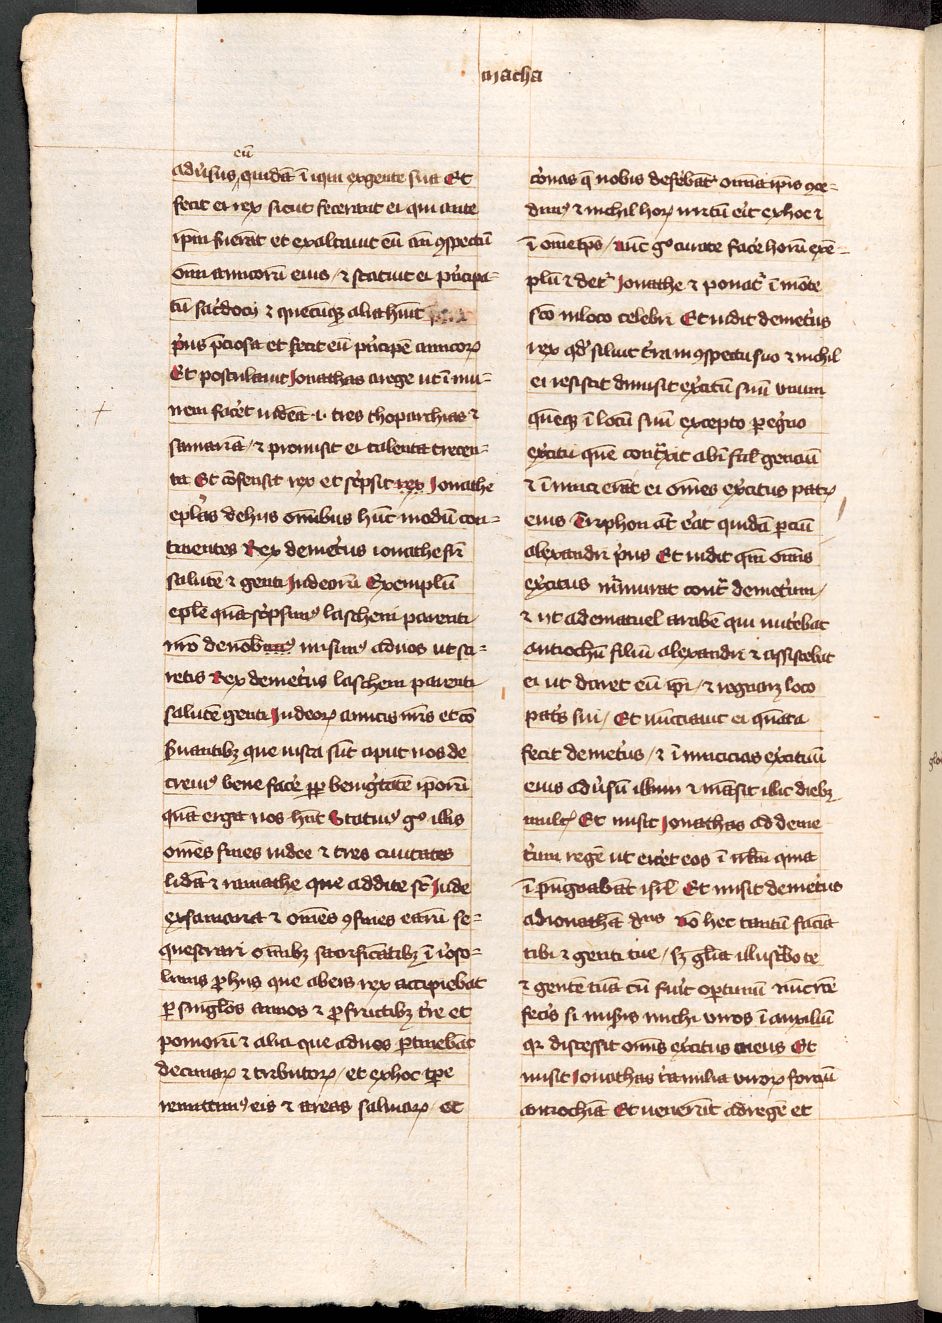 macha
eū
adûsus quidā ī iqui exgente sua Et
fecit ei rex sicut fecerant ei qui ante
ipm̄ fuerāt et exaltauit eū in ꝯspectu
om̄i amicorū eius / ⁊ statuit ei prīcipa=
tū sac̄docij ⁊ quecūqꝫ alia hūit
prīus p̄ciosa et fecit eū prīcipē amicoꝝ
Et postulauit Jonathas a rege ut ī mu=
nem fac̄et iudeā ⁊ tres thoparchias ⁊
samariā / ⁊ promisit ei talenta trecen=
ta Et cōsensit rex et sc̄psit rex Jonathe
ep̄las de hiis om̄ibus hūc modū con
tinentes Rex demet̄us ionathe fr̄i
salutē ⁊ genti Judeorū Exemplū
ep̄le quā sc̄psimꝰ lascheni parenti
nr̄o de uob misimꝰ aduos ut sci=
retis Rex demet̄us lascheni parenti
salutē genti Judeoꝝ amicis nr̄is et cō
s̄uantibꝫ que iusta sūt aput nos de
creuimꝰ bene fac̄e ꝓpt̄ benig̅tatē ip̄orū
quā erga nos hn̄t Statuimꝰ gͦ illis
om̄es fines iudee ⁊ tres ciuitates
lidā ⁊ ramathe que addite st̄ Jude
ex samaria ⁊ om̄es ꝯfines earū se=
questrari om̄ibꝫ sacrificātibꝫ ī iroso=
limis ꝓ hiis que ab eis rex accipiebat
ꝑ singlos annos ⁊ ꝓ fructibꝫ tr̄e et
pomorū ⁊ alia que aduos ꝑtinebāt
decimaꝝ ⁊ tributoꝝ / et ex hoc tpr̄e
remittimꝰ eis ⁊ areas salinaꝝ et
coronas q̄ nobis defebāt omīa ip̄is ꝯce=
dimꝰ ⁊ nichil hoꝝ irritū erit ex hoc ⁊
ī om̄e tp̄s / nūc gͦ curate fac̄e horū exē=
plū ⁊ det̄ Jonathe ⁊ ponat̄ ī mōte
sc̄o in loco celebri Et uidit demet̄us
rex qd̄ siluit t̄ra in ꝯspectu suo ⁊ nichil
ei resistit dimisit ex̄citū suū unum
quēqꝫ ī locū suū excepto pegr̄io
ex̄citu quē contraxit ab īsulis genciū
⁊ īimici erāt ei om̄es ex̄citus patꝝ
eius Triphon at̄ erat quidā ꝑciū
alexandri prīus Et uidit qm̄ om̄is
ex̄citus m̄murat cont̄ demet̄um /
⁊ iit ad emalcuel arabē qui nut̄ebat
antiochū filiū alexandri ⁊ assistebat
ei ut daret eū ip̄i / ⁊ regnaꝫ loco
pat̄s sui / Et nūciauit ei quāta
fecit demet̄us / ⁊ īimicicias ex̄cituū
eius adûsū illum ⁊ māsit illic diebꝫ
multꝭ Et misit Jonathas ad deme
t̄ium regē ut eic̄et eos ī irlm̄ quia
ī pūgnabāt isrl̄ Et misit demet̄us
ad Jonathā dicēs nō hec tantū faciā
tibi ⁊ genti tue / sꝫ gl̄ia illust̄bo te
⁊ gentē tuā cū fuit oportunū nūc rc̄te
fec̄is si mis̄is michi uiros ī auxiliū
qr̄ discessit om̄is ex̄citus meus Et
misit Jonathas t̄ia milia uiroꝝ forciū
antiochiā Et uenerūt ad regē et